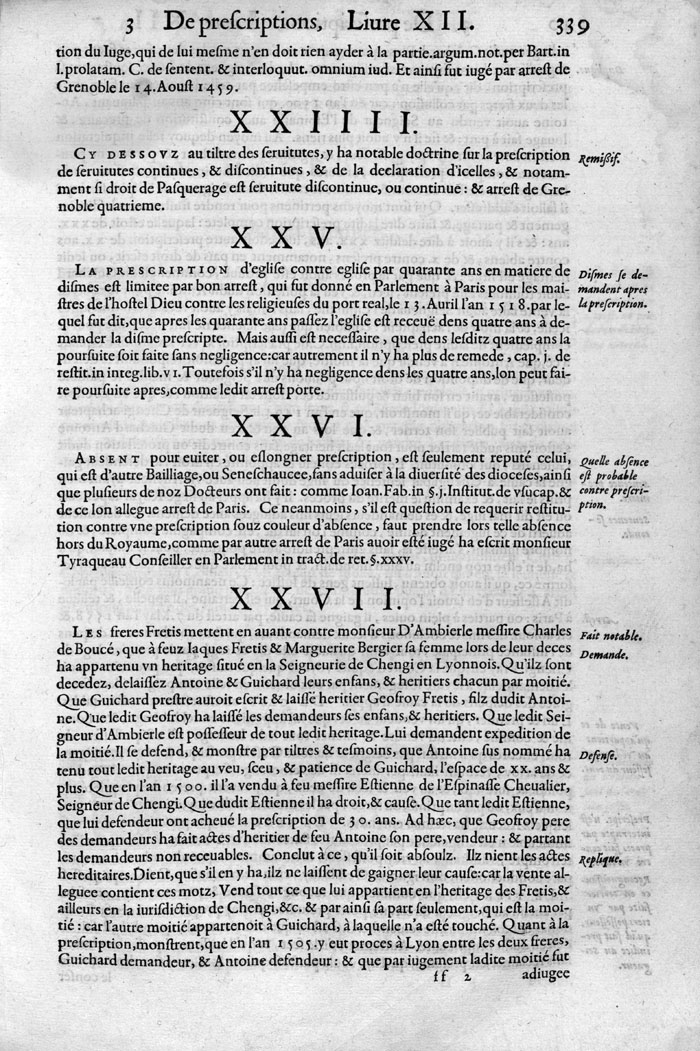 3 De prescriptions, Liure XII. 339
tion du Iuge, qui de lui mesme n'en doit rien ayder à la partie. argum. not. per Bart. in
l. prolatam. C. de sentent. & interloquut. omnium iud. Et ainsi fut iugé par arrest de
Grenoble le 14. Aoust 1459.
XXIIII.
CY DESSOVZ au tiltre des seruitutes, y ha notable doctrine sur la prescription
de seruitutes continues, & discontinues, & de la declaration d'icelles, & notam-
ment si droit de Pasquerage est seruitute discontinue, ou continue: & arrest de Gre-
noble quatrieme.
Remißif.
XXV.
LA PRESCRIPTION d'eglise contre eglise par quarante ans en matiere de
dismes est limitee par bon arrest, qui fut donné en Parlement à Paris pour les mai-
stres de l'hostel Dieu contre les religieuses du port real, le 13. Auril l'an 1518. par le-
quel fut dit, que apres les quarante ans passez l'eglise est receuë dens quatre ans à de-
mander la disme prescripte. Mais aussi est necessaire, que dens lesditz quatre ans la
poursuite soit faite sans negligence: car autrement il n'y ha plus de remede, cap. j. de
restit. in integ. lib. vI. Toutefois s'il n'y ha negligence dens les quatre ans, lon peut fai-
re poursuite apres, comme ledit arrest porte.
Dismes se de-
mandent apres
la prescription.
XXVI.
ABSENT pour euiter, ou eslongner prescription, est seulement reputé celui,
qui est d'autre Bailliage, ou Seneschaucee, sans aduiser à la diuersité des dioceses, ainsi
que plusieurs de noz Docteurs ont fait: comme Ioan. Fab. in §. j. Institut. de vsucap. &
de ce lon allegue arrest de Paris. Ce neanmoins, s'il est question de requerir restitu-
tion contre vne prescription souz couleur d'absence, faut prendre lors telle absence
hors du Royaume, comme par autre arrest de Paris auoir esté iugé ha escrit monsieur
Tyraqueau Conseiller en Parlement in tract. de ret. §. xxxv.
Quelle absence
est probable
contre prescri-
ption.
XXVII.
LES freres Fretis mettent en auant contre monsieur D'Ambierle messire Charles
de Boucé, que à feuz Iaques Fretis & Marguerite Bergier sa femme lors de leur deces
ha appartenu vn heritage situé en la Seigneurie de Chengi en Lyonnois. Qu'ilz sont
decedez, delaissez Antoine & Guichard leurs enfans, & heritiers chacun par moitié.
Que Guichard prestre auroit escrit & laissé heritier Geofroy Fretis, filz dudit Antoi-
ne. Que ledit Geofroy ha laissé les demandeurs ses enfans, & heritiers. Que ledit Sei-
gneur d'Ambierle est possesseur de tout ledit heritage. Lui demandent expedition de
la moitié. Il se defend, & monstre par tiltres & tesmoins, que Antoine sus nommé ha
tenu tout ledit heritage au veu, sceu, & patience de Guichard, l'espace de xx. ans &
plus. Que en l'an 1500. il l'a vendu à feu messire Estienne de l'Espinasse Cheualier,
Seigneur de Chengi. Que dudit Estienne il ha droit, & cause. Que tant ledit Estienne,
que lui defendeur ont acheué la prescription de 30. ans. Ad hæc, que Geofroy pere
des demandeurs ha fait actes d'heritier de feu Antoine son pere, vendeur: & partant
les demandeurs non receuables. Conclut à ce, qu'il soit absoulz. Ilz nient les actes
hereditaires. Dient, que s'il en y ha, ilz ne laissent de gaigner leur cause: car la vente al-
leguee contient ces motz, Vend tout ce que lui appartient en l'heritage des Fretis, &
ailleurs en la iurisdiction de Chengi, &c. & par ainsi sa part seulement, qui est la moi-
tié: car l'autre moitié appartenoit à Guichard, à laquelle n'a esté touché. Quant à la
prescription, monstrent, que en l'an 1505. y eut proces à Lyon entre les deux freres,
Guichard demandeur, & Antoine defendeur: & que par iugement ladite moitié fut
Fait notable.
Demande.
Defense.
Replique.
ff 2 adiugee